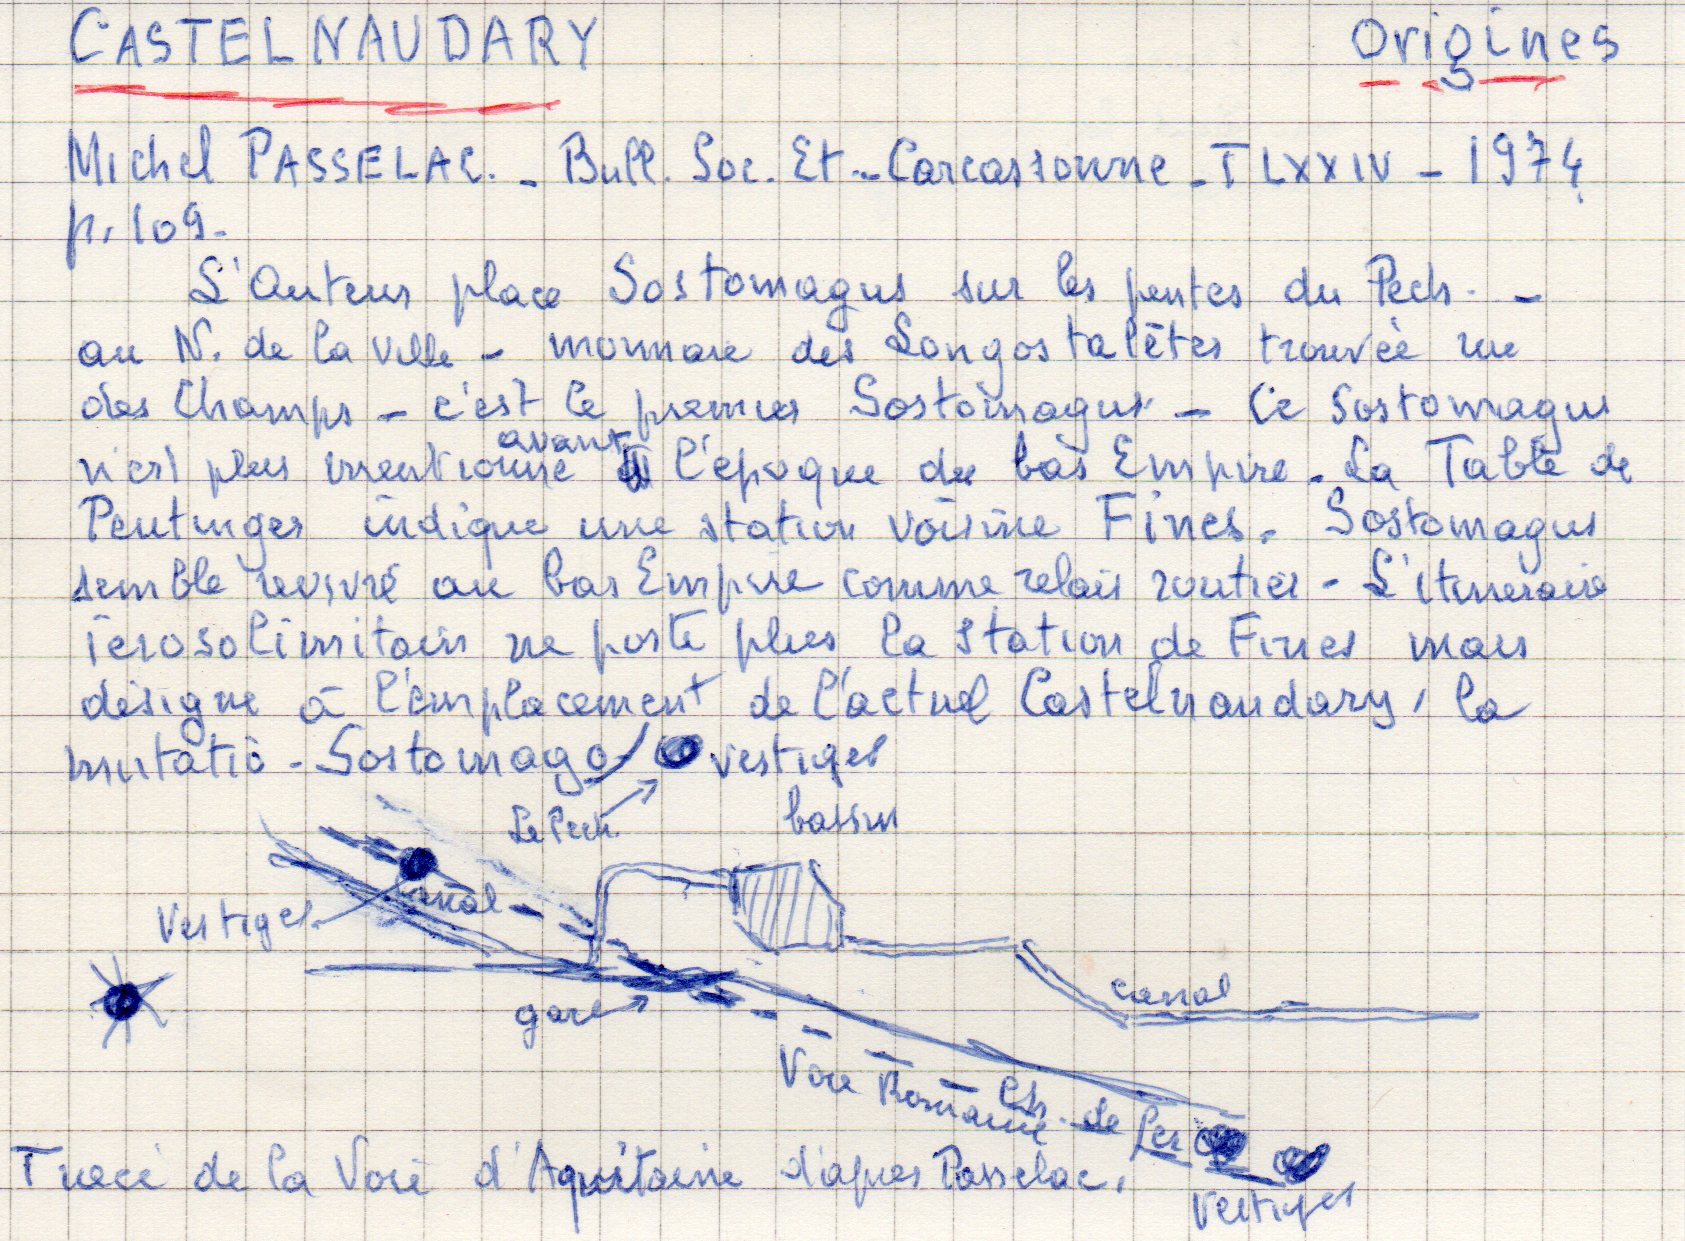 CASTELNAUDARY Origines
Michel PASSELAC. - Bull. Soc. Et. - Carcassonne - T LXXIV - 1974
p. 109.
L'Auteur place Sostomagus sur les pentes du Pech. -
au N. de la ville - monnaie des Longostalètes trouvée rue
des Champs - c'est le premier Sostomagus - Ce Sostomagus
n'est plus mentionné avant l'époque du bas Empire. La Table de
Peutinger indique une station voisine Fines. Sostomagus
semble revivre au bas Empire comme relais routier - L'itineraire
ierosolimitain ne porte plus la station de Fines mais
désigne à l'emplacement de l'actuel Castelnaudary, la
mutatio - Sostomago/ vestiges
Le Pech bassin
canal
Vestiges
canal
gare
Voie Romaine Ch. de fer
Tracé de la Voie d'Aquitaine d'apres Passelac.
Vestiges